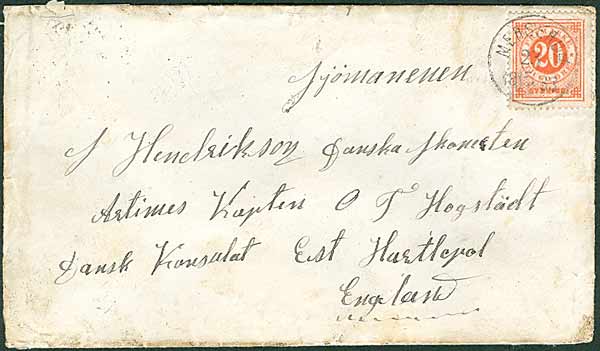 Sjömannen
S Hendrikson Danska Skonerten
Artimes Kapten O T Hogstädt
Dansk Konsulat Est Hartlepol
England
20